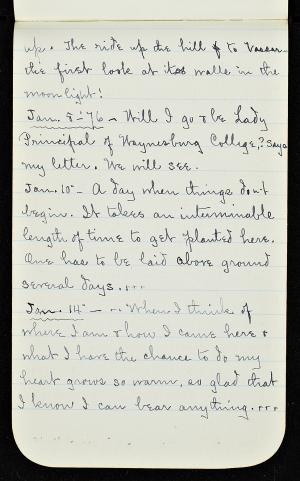 up. The ride up the hill & to Vassar -
the first look at its walls in the
moonlight!
Jan. 8-'76 - Will I go & be Lady
Principal of Waynesburg College? says
my letter. We will see.
Jan. 10 - A day when things don't
begin. It takes an interminable
length of time to get planted here.
One has to be laid above ground
several days....
Jan. 14 - .. When I think of
where I am & how I came here &
what I have the chance to do my
heart grows so warm, so glad that
I know I can bear anything....